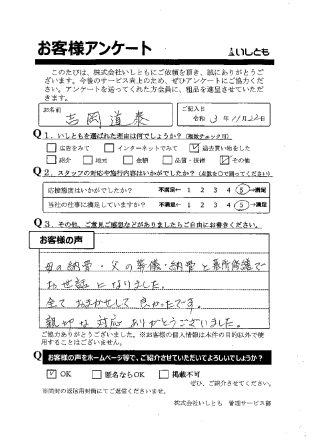 お客様アンケート
いしとも
このたびは、株式会社いしともにご依頼を頂き、誠にありがとうご
ざいます。今後のサービス向上のため、ぜひアンケートにご協力くだ
さい。アンケートを送ってくれた方全員に、粗品を進呈させていただ
きます。
お名前
吉岡道泰
ご記入日
令和 3 年 11 月 22 日
Q1．いしともを選ばれた理由は何でしょうか？（複数チェック可）
広告をみて インターネットでみて 過去買い物をした
紹介 地元 金額 品質・技術 その他
Q2．スタッフの対応や施行内容はいかがでしたか？（点数を○で囲ってください）
応接態度はいかがでしたか？ 不満足← 1 2 3 4 5 →満足
当社の仕事に満足していますか？ 不満← 1 2 3 4 5 →満足
Q3．その他、ご意見ご感想などがありましたらご自由にお書きください。
お客様の声
母の納骨・父の葬儀・納骨と墓所修繕で
お世話になりました。
全ておまかせして良かったです。
親切な対応ありがとうございました。
ご協力ありがとうございました。※お客様の個人情報は本件の目的以外で使
用することはございません。
Q お客様の声をホームページ等で、ご紹介させていただいてよろしいでしょうか？
OK 匿名ならOK 掲載不可
ぜひ、ご紹介させてください。
※同封の返信用封筒にてご返信くださいませ。
株式会社いしとも 管理サービス部